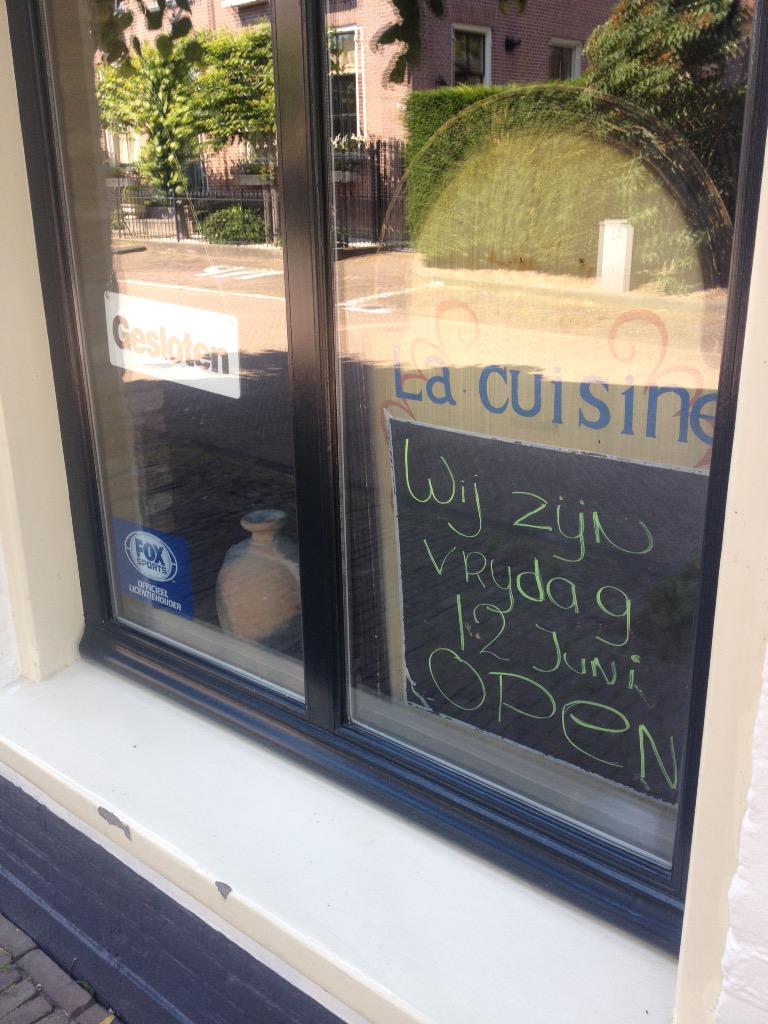 Gesloten
La cuisine
Wij zijn
vrijdag
12 Juni
OPEN
FOX
SPORTS
OFFICIEEL
LICENTIEHOUDER